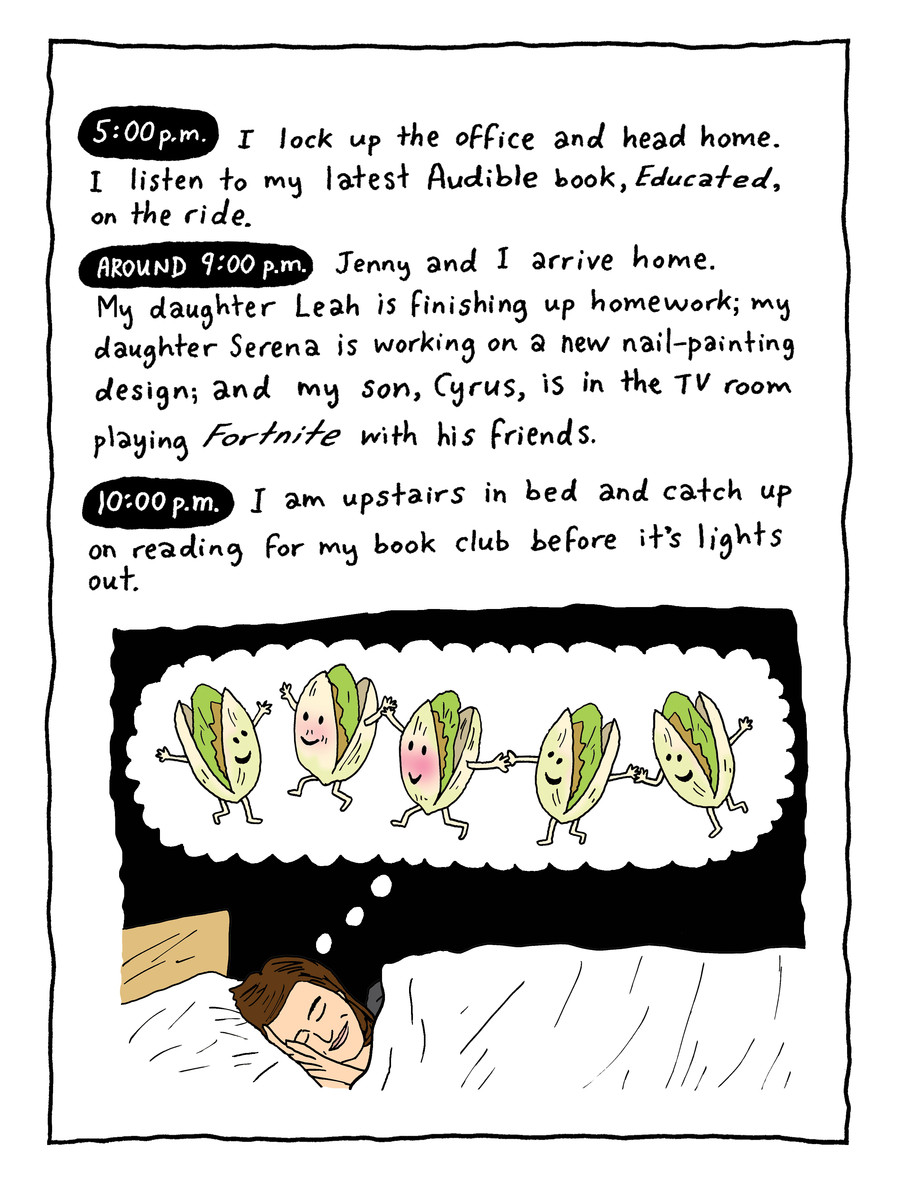 5:00 p.m. I lock up the office and head home.
I listen to my latest Audible book, Educated,
on the ride.
AROUND 9:00 p.m. Jenny and I arrive home.
My daughter Leah is finishing up homework; my
daughter Serena is working on a new nail-painting
design; and my son, Cyrus, is in the TV room
playing Fortnite with his friends.
10:00 p.m. I am upstairs in bed and catch up
on reading for my book club before it's lights
out.